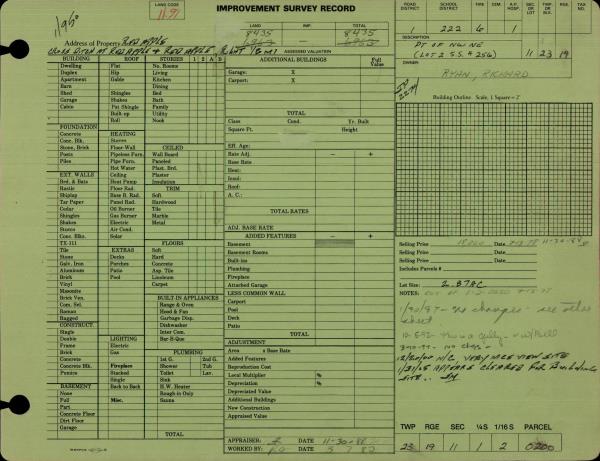 LAND CODE
1191
IMPROVEMENT SURVEY RECORD
LAND IMP. TOTAL
8435 8435
ASSESSED VALUATION
Address of Property RED APPLE
CROSS DITCH AT RED APPLE & RED APPLE
ROAD DISTRICT
SCHOOL DISTRICT
222
A.P. HOSP.
1
SEC. LOT
11
TWP./BLK.
23
RGE.
19
TAX NO.
DESCRIPTION
PT OF NW NE
(LOT 2 S.S. #256)
OWNER
RYAN, RICHARD
Building Outline Scale, 1 Square = 2'
BUILDING ROOF STORIES 1 2 A B
Dwelling Flat No. Rooms
Duplex Hip Living
Apartment Gable Kitchen
Barn Dining
Shed Shingles Bed
Garage Shakes Bath
Cabin Pat Shingle Family
Built-up Utility
Roll Nook
FOUNDATION
Concrete HEATING
Conc. Blk. Stoves CEILED
Stone, Brick Floor-Wall Wall Board
Posts Pipeless Furn. Paneled
Piles Pipe Furn. Plast. Brd.
Hot Water Plaster
EXT. WALLS Ceiling Insulation
Brd. & Bats Heat Pump
Rustic Floor Rad. TRIM
Shiplap Base B. Rad. Soft
Tar Paper Panel Rad. Hardwood
Cedar Oil Burner Tile
Shingles Gas Burner Marble
Shakes Electric Metal
Stucco Air Cond.
Conc. Blks. Solar
TX-111 FLOORS
Tile EXTRAS Soft
Stone Decks Hard
Galv. Iron Porches Concrete
Aluminum Patio Asp. Tile
Brick Pool Linoleum
Vinyl Carpet
Masonite
Brick Ven. BUILT-IN APPLIANCES
Com. Sel. Range & Oven
Roman Hood & Fan
Ragged Garbage Disp.
CONSTRUCT. Dishwasher
Single Inter Com.
Double LIGHTING Bar-B-Que
Frame Electric
Brick Gas PLUMBING
Concrete 1st G. 2nd G.
Conc. Blks. Fireplace Shower Tub
Pumice Stacked Toilet Lav.
Single Sink
BASEMENT Back to Back H.W. Heater
None Rough-in Only
Full Misc. Sauna
Part
Concrete Floor
Dirt Floor
Garage
TOTAL
ADDITIONAL BUILDINGS Full Value
Garage: X
Carport: X
TOTAL
Class Cond. Yr. Built
Square Ft. Height
Eff. Age:
Rate Adj. − +
Base Rate
Heat:
Insul:
Roof:
A. C.:
TOTAL RATES
ADJ. BASE RATE
ADDED FEATURES − +
Basement
Basement Rooms
Built-ins
Plumbing
Fireplace
Attached Garage
LESS COMMON WALL
Carport
Pool
Deck
Patio
TOTAL
ADJUSTMENT
Area x Base Rate
Added Features
Reproduction Cost
Local Multiplier %
Depreciation %
Depreciated Value
Additional Buildings
New Construction
Appraised Value
APPRAISER: DATE 11-30-88
WORKED BY: DATE
Selling Price Date 11-30-88
Selling Price Date
Includes Parcels #
Lot Size: 2.87AC
NOTES:
1/30/87 - no changes - see other
sheet
12/20/00 N/C, VERY NICE VIEW SITE
1/31/05 APPEARS CLEARED FOR BUILDING
SITE.
TWP RGE SEC ¼S 1/16 S PARCEL
23 19 11 1 2 0200